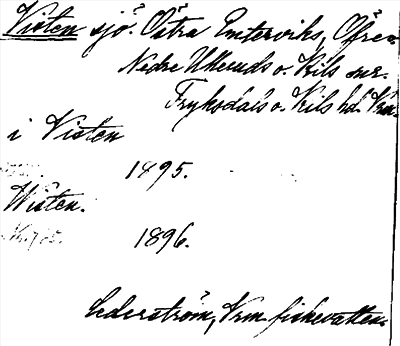 Visten sjö. Östra Emterviks, Öfre-
Nedre Ulleruds o. Kils snr.
Fryksdals o. Kils hd. Vrm.
i Visten
1495.
Wisten.
1896.
Cederström, Vrm. fiskevatten.